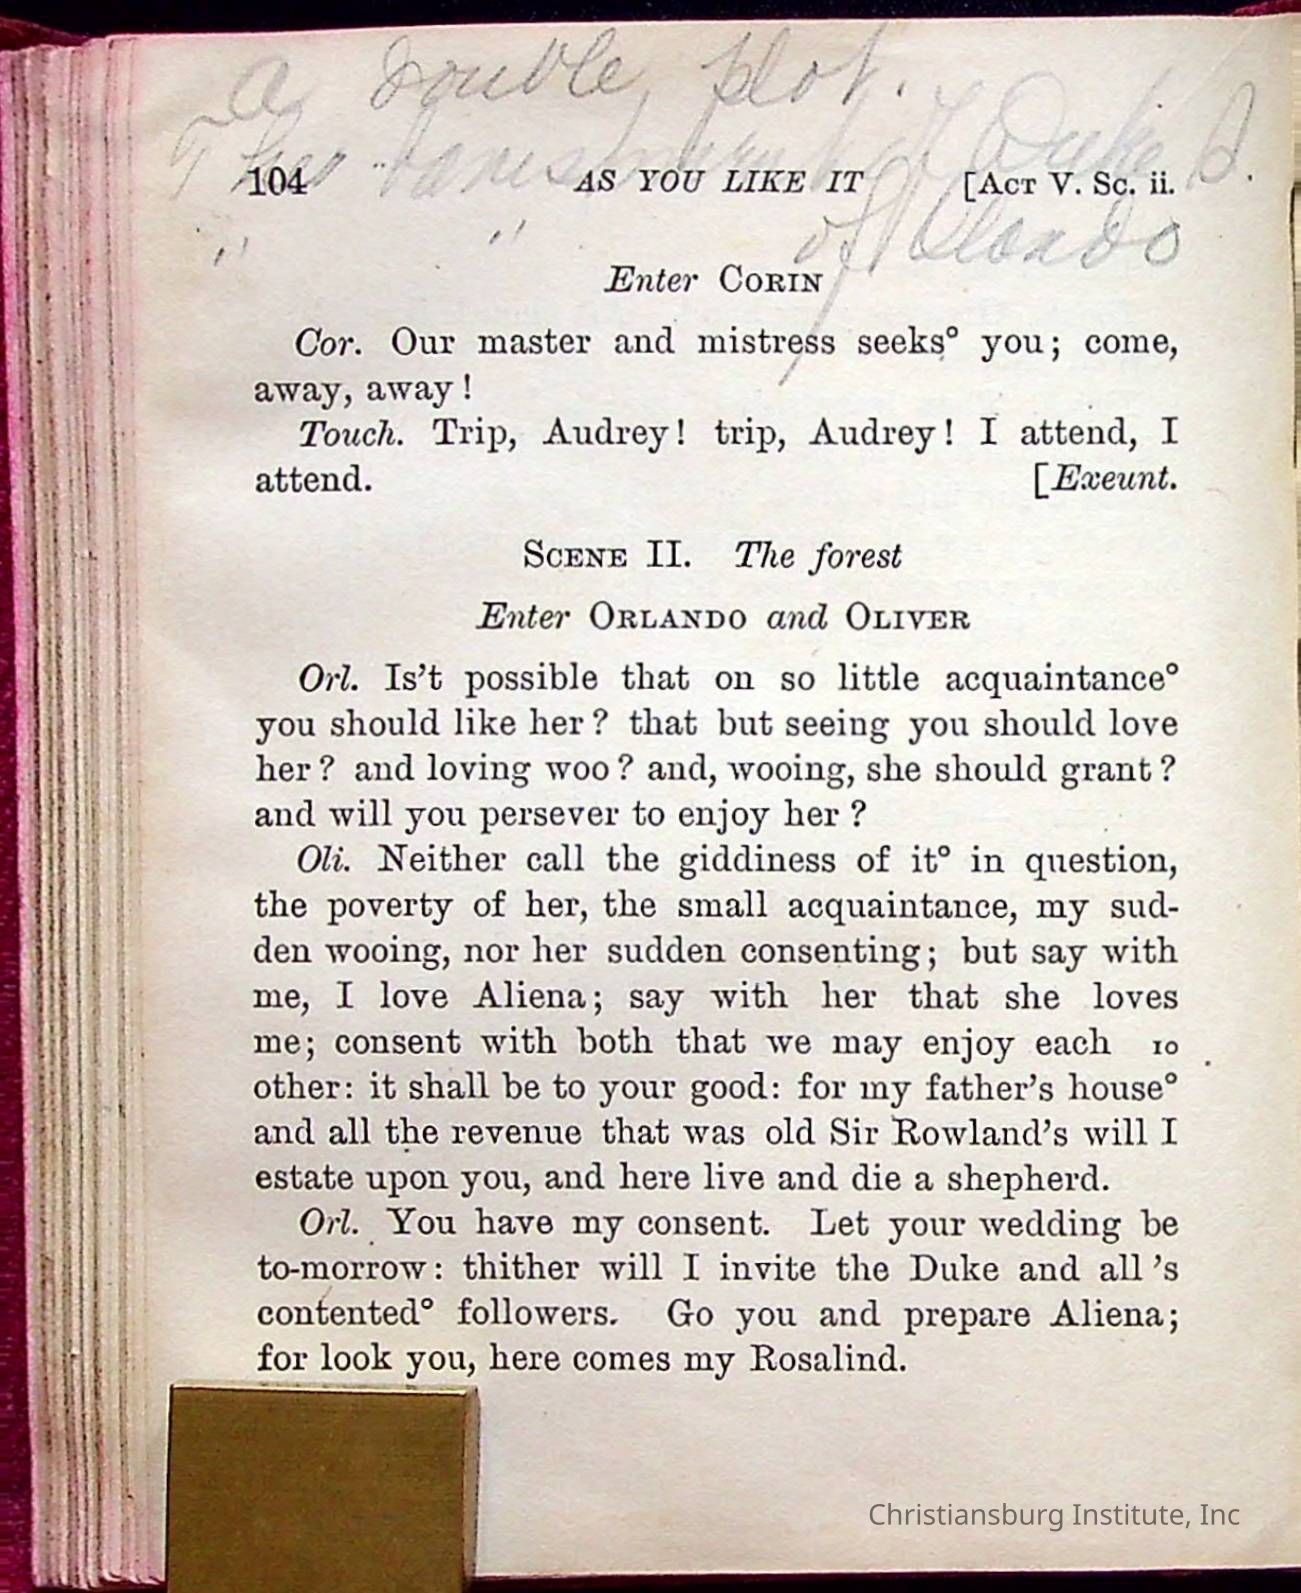 A double plot.
The banishment of Duke S.
" " of Orlando
104 AS YOU LIKE IT [ACT V. Sc. ii.
Enter CORIN
Cor. Our master and mistress seeks° you; come,
away, away!
Touch. Trip, Audrey! trip, Audrey! I attend, I
attend. [Exeunt.
SCENE II. The forest
Enter ORLANDO and OLIVER
Orl. Is't possible that on so little acquaintance°
you should like her? that but seeing you should love
her? and loving woo? and, wooing, she should grant?
and will you persever to enjoy her?
Oli. Neither call the giddiness of it° in question,
the poverty of her, the small acquaintance, my sud-
den wooing, nor her sudden consenting; but say with
me, I love Aliena; say with her that she loves
me; consent with both that we may enjoy each 10
other: it shall be to your good: for my father's house°
and all the revenue that was old Sir Rowland's will I
estate upon you, and here live and die a shepherd.
Orl. You have my consent. Let your wedding be
to-morrow: thither will I invite the Duke and all 's
contented° followers. Go you and prepare Aliena;
for look you, here comes my Rosalind.
Christiansburg Institute, Inc